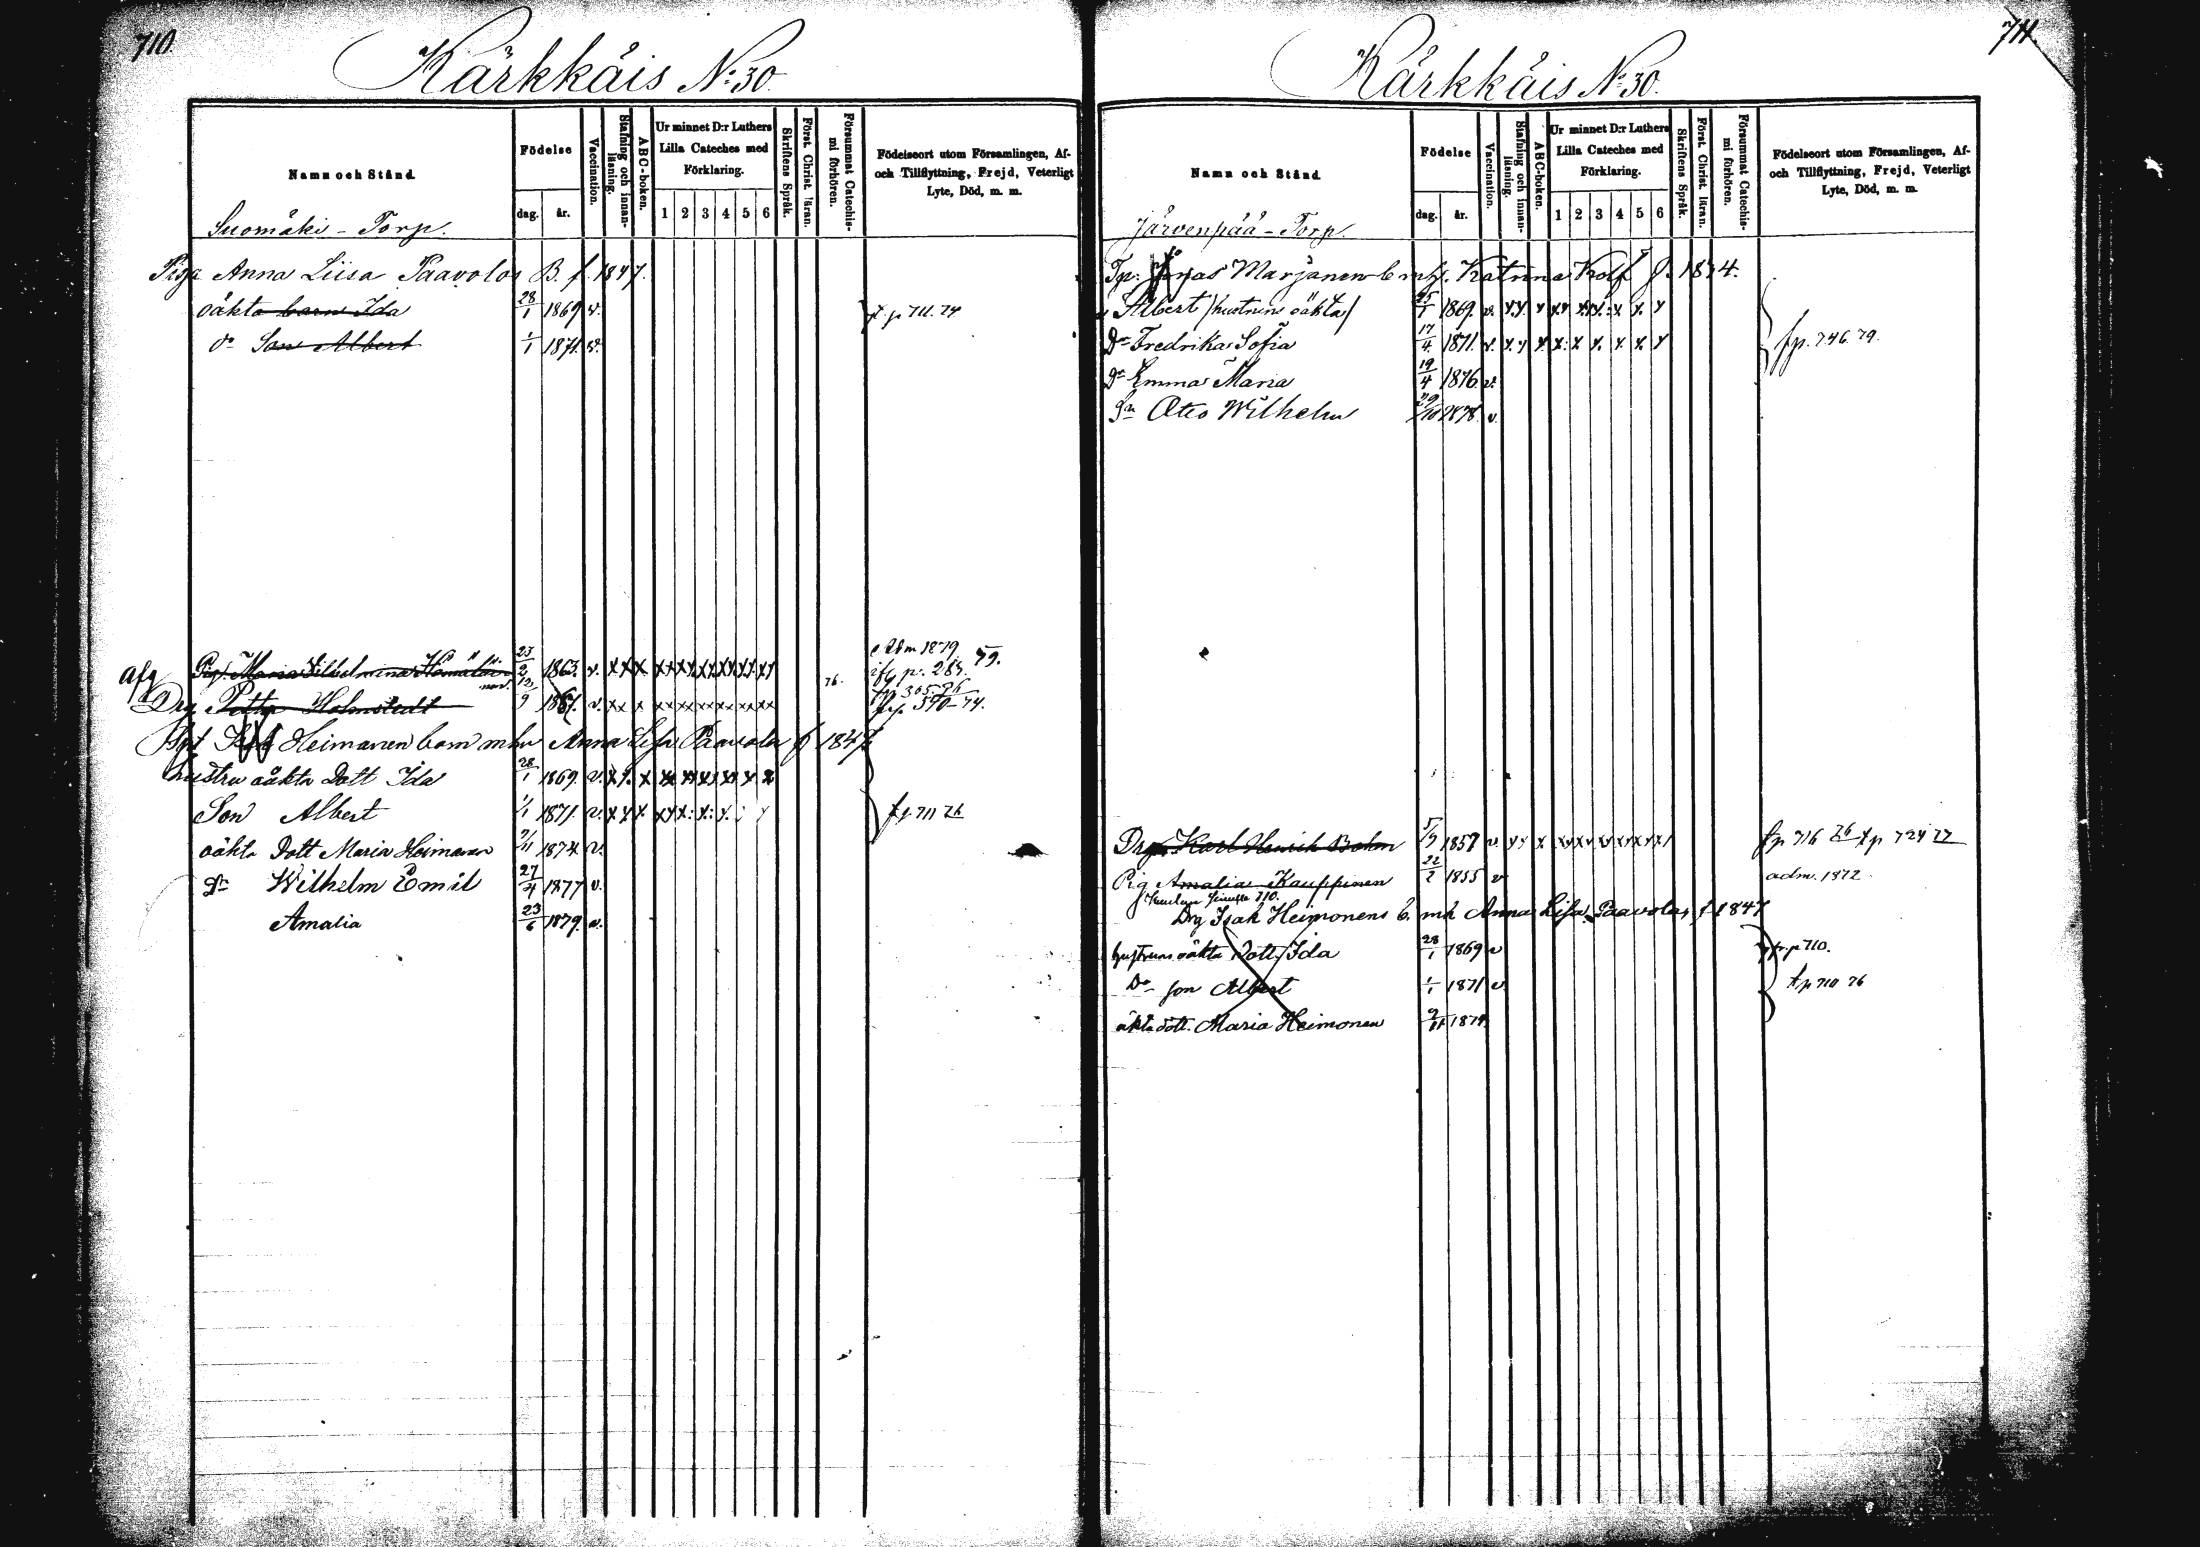 710.
Kärkkäis No. 30
Namn och Stånd.
Födelse
dag. år.
Vaccination.
Stafning och innan-läsning.
ABC-boken.
Ur minnet D:r Luthers Lilla Cateches med Förklaring.
1 2 3 4 5 6
Skriftens Språk.
Först. Christ. läran.
Försummat Catechis-mi förhören.
Födelseort utom Församlingen, Af- och Tillflyttning, Frejd, Veterligt Lyte, Död, m. m.
Suomäki - Torp.
Piga Anna Liisa Paavolas B. f. 1847.
oäkta barn Ida 28/1 1869 v.
do Son Albert 1/1 1871. v. t. p 711. 74
Pig. Maria Vilhelmina 23/2 1863. v. x x x x x x x x x x Adm 1879
afg p. 289. 79.
Drg Petter Holmstedt 9 1867. v. x x x x x x x x x 76. fp 365. 76
fr. p. 590-74.
Heimonen barn m hu Anna Lisa Paavola f 1847
hustru oäkta Dott Ida 28/1 1869. v. x x. x x x x x x
Son Albert 1/1 1871. v. x x x. x x x: x: x. fp 711 76
oäkta Dott Maria Heimonen 9/11 1874 v.
Dn Wilhelm Emil 27/4 1877 v.
Amalia 23/6 1879. v.
711.
Kärkkäis No. 30.
Namn och Stånd.
Födelse
dag. år.
Vaccination.
Stafning och innan-läsning.
ABC-boken.
Ur minnet D:r Luthers Lilla Cateches med Förklaring.
1 2 3 4 5 6
Skriftens Språk.
Först. Christ. läran.
Försummat Catechis-mi förhören.
Födelseort utom Församlingen, Af- och Tillflyttning, Frejd, Veterligt Lyte, Död, m. m.
Järvenpää - Torp.
Tp. Jonas Marjanen b. mh. Katrina Kolf f. 1834.
Albert /hustruns oäkta/ 25/1 1869. v. x x. x x x x x x x
Dr Fredrika Sofia 17/4 1871. v. x. x x x: x x. x. x. x
Dr Emma Maria 19/4 1876. v. fp. 746 79.
Sn Otto Wilhelm 29/10 1878. v.
Drg Karl Henrik Bohm 5/9 1857 v. x x x x x x x x x x fp 716 76 tp 724 77
Pig Amalia Kauppinen 22/2 1855 v adm. 1872
710.
Drg Isak Heimonens b. mh Anna Lisa Paavolas, f 1847
hustruns oäkta Dott. Ida 28/1 1869 v fr. p 710.
Do son Albert 1/1 1871 v. t. p 710 76
äkta dott. Maria Heimonen 9/11 1874.